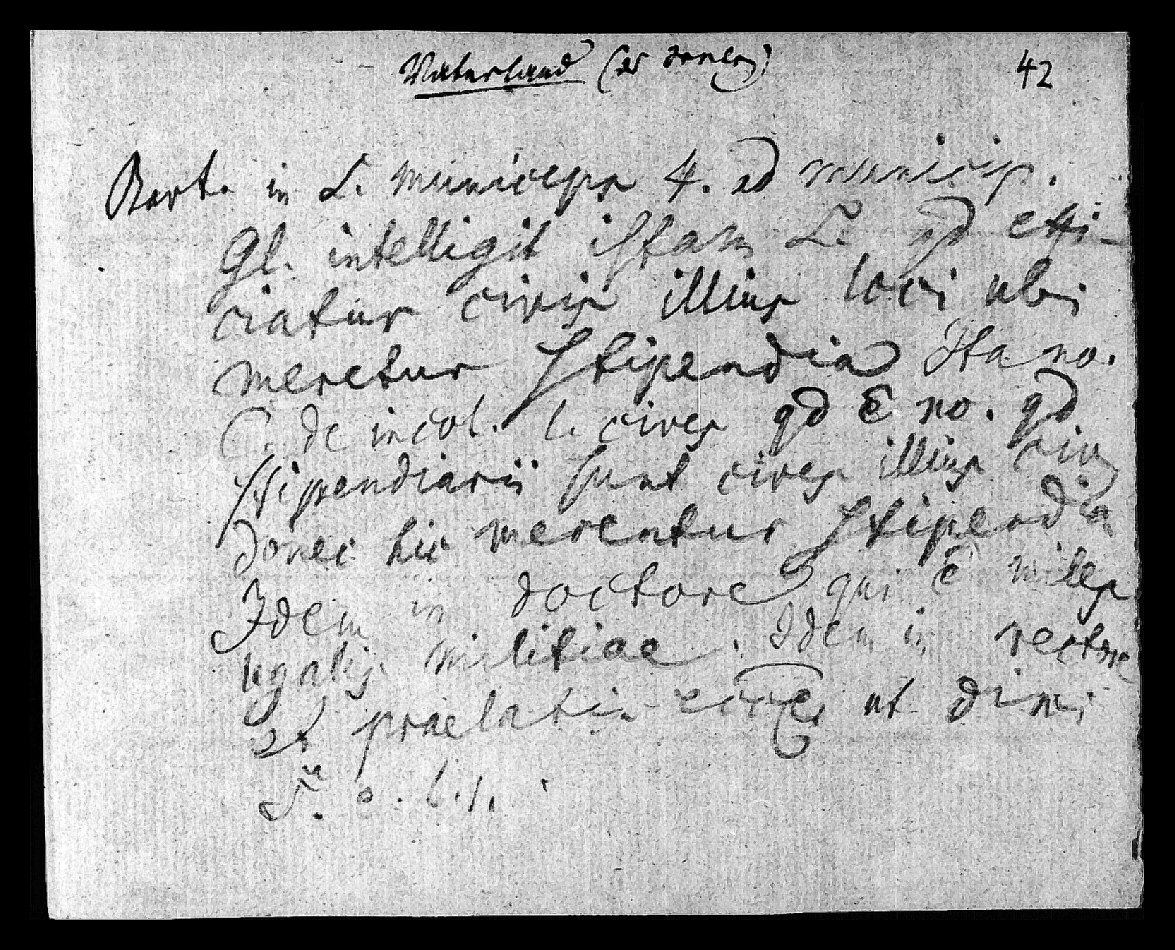 Vaterland 42
Bart. in L. municeps 4. ad municip.
Gl. intelligit istam L. qd effi-
ciatur civis illius loci ubi
meretur stipendia Ita no.
C. de incol. l. cives qd ē no. qd
stipendiarii sunt cives illius civ
donec hic merentur stipendia
Idem in doctore qui ē miles
legalis militiae. Idem in rectore
et praelatis ut dixi
S. o. l. 1.